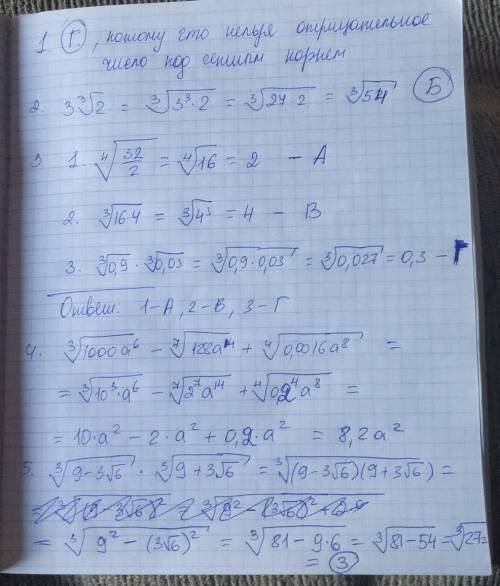 1. Г. , потому что нельзя отрицательное
число под чётным корнем
2. 3∛2 = ∛(3³·2) = ∛(27·2) = ∛54 Б
3. 1. ∜(32/2) = ∜16 = 2 – А
2. ∛(16·4) = ∛4³ = 4 – В
3. ∛0,9 · ∛0,03 = ∛(0,9·0,03) = ∛0,027 = 0,3 – Г
Ответ: 1–А, 2–В, 3–Г
4. ∛(1000a⁶) – ⁷√(128a¹⁴) + ∜(0,0016a⁸) =
= ∛(10³·a⁶) – ⁷√(2⁷a¹⁴) + ∜(0,2⁴a⁸) =
= 10·a² – 2·a² + 0,2·a² = 8,2a²
5. ∛(9-3√6) · ∛(9+3√6) = ∛((9-3√6)(9+3√6)) =
= ∛(9² – (3√6)²) = ∛(81-9·6) = ∛(81-54) = ∛27 =
= 3